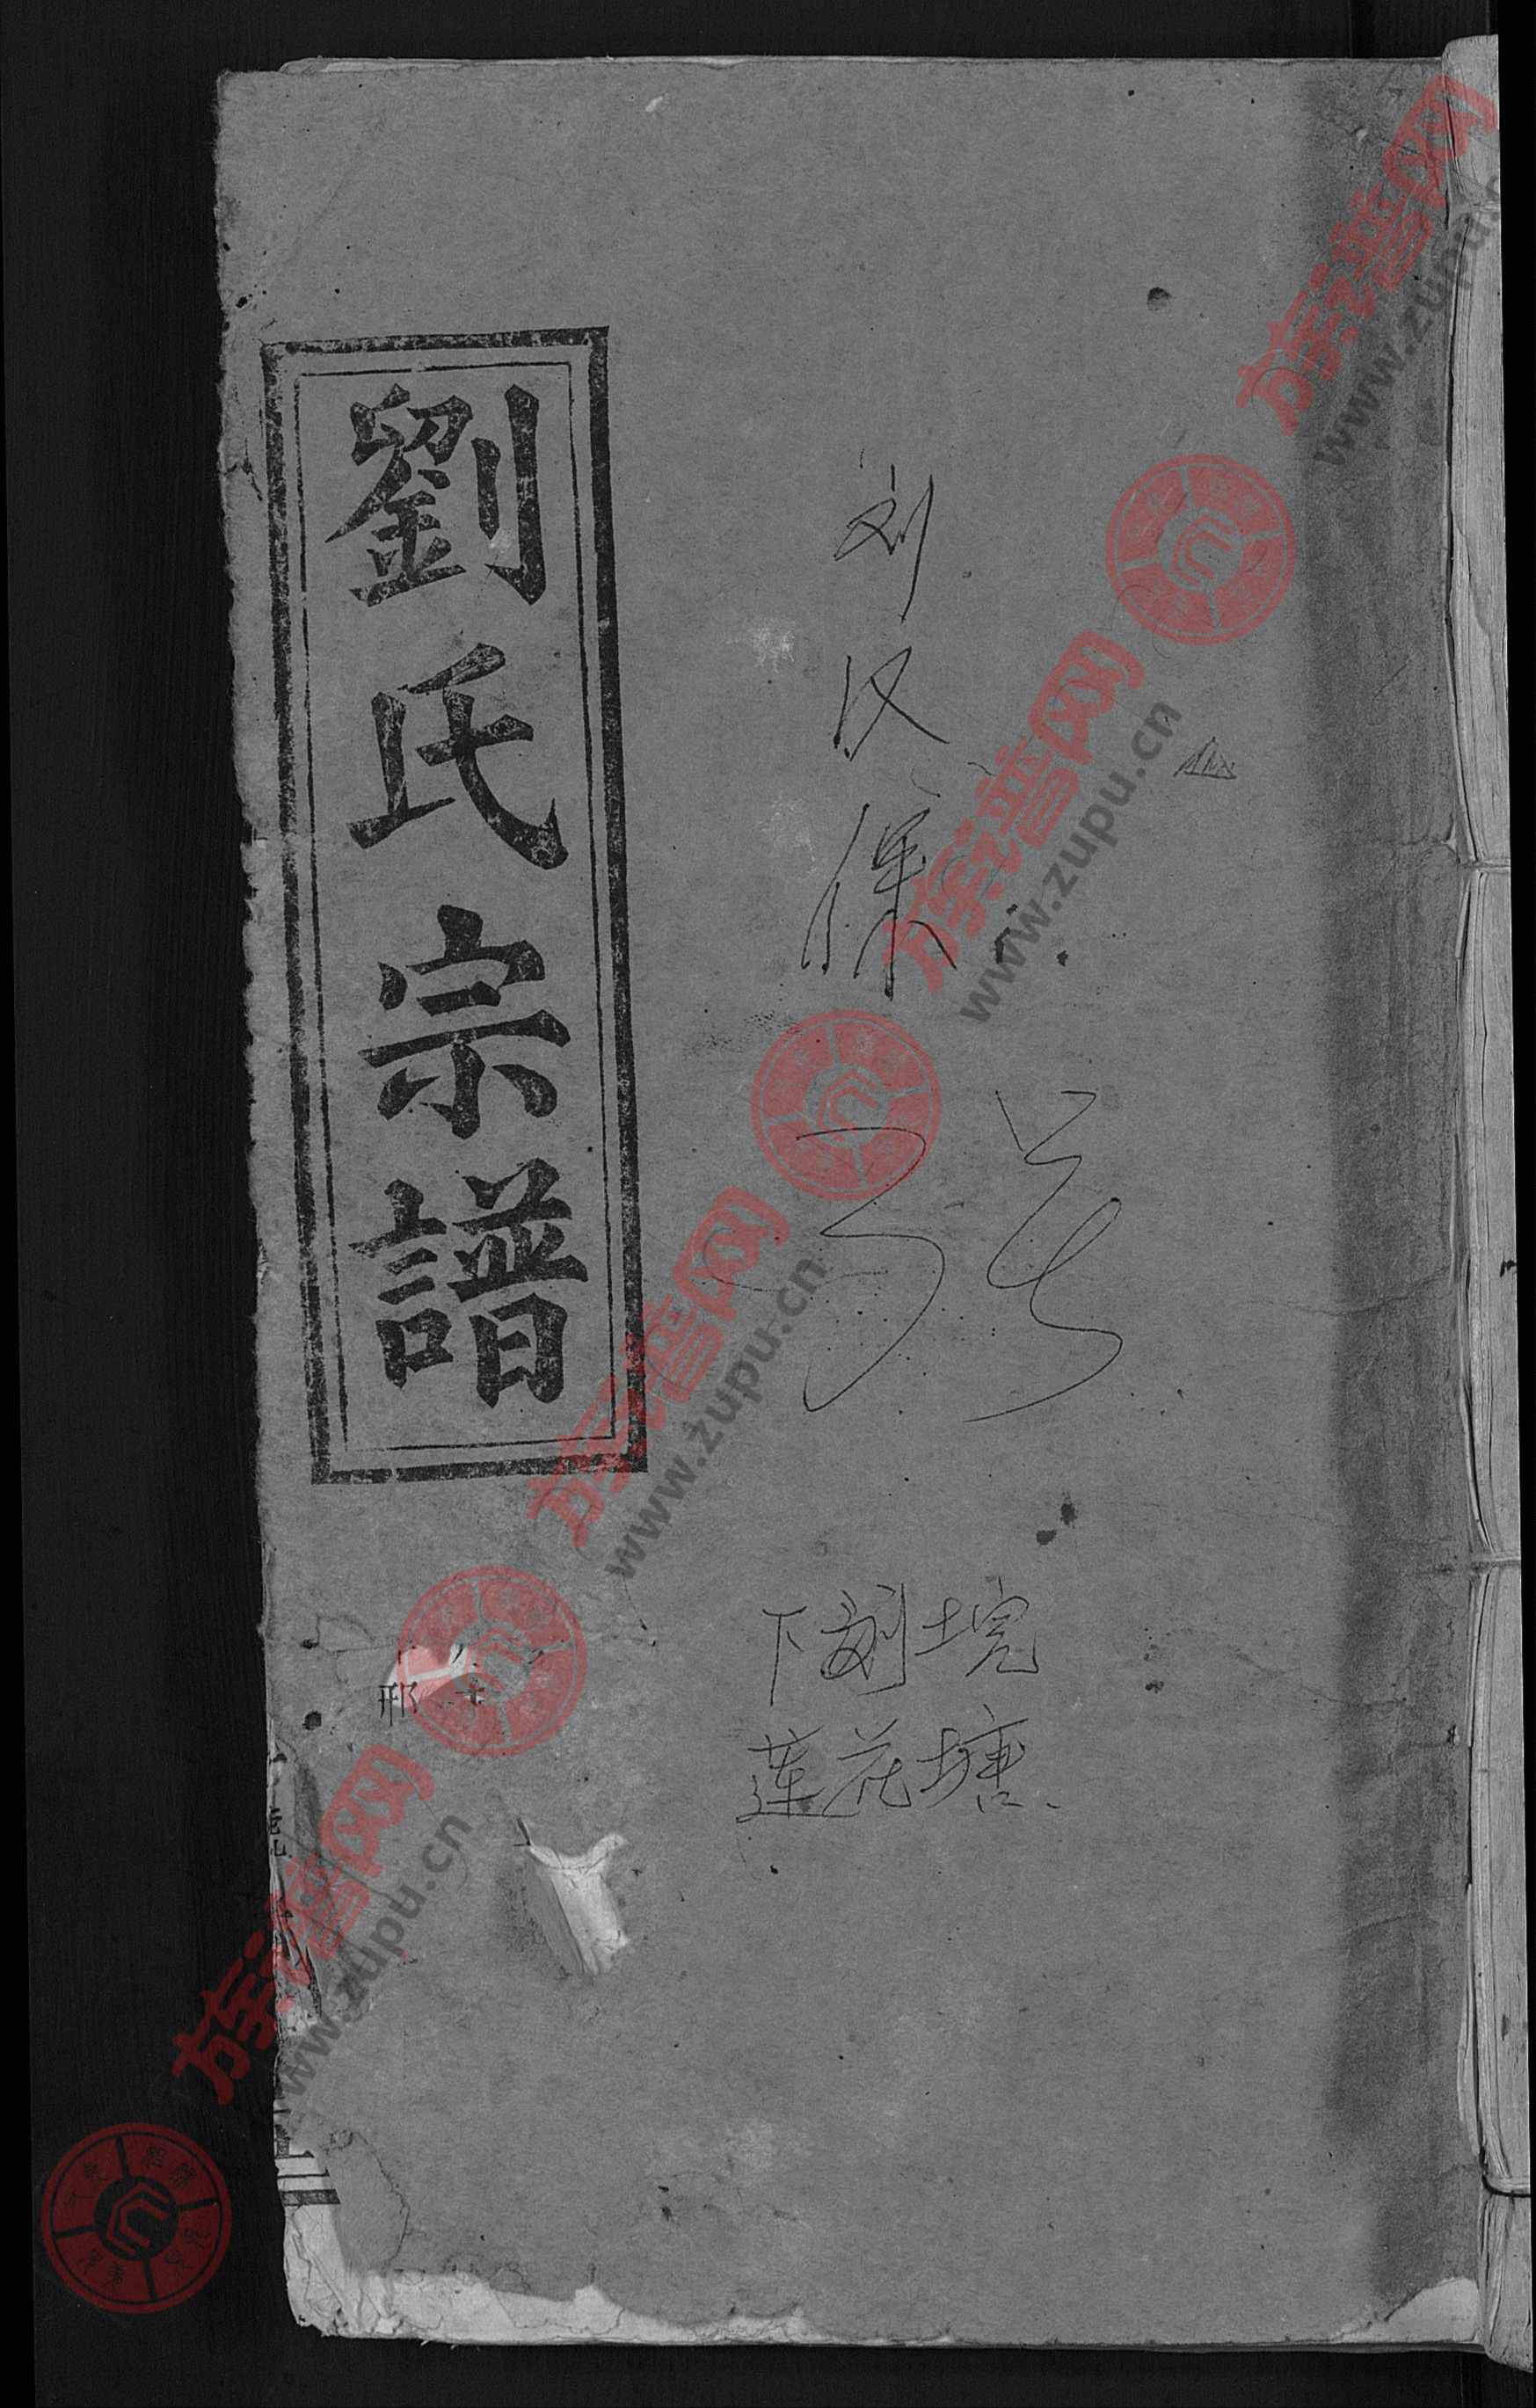 劉氏宗譜
刘汉保
下刘垸
莲花塘
邢
族谱网
www.zupu.cn
族谱网
www.zupu.cn
族谱网
www.zupu.cn
族谱网
www.zupu.cn